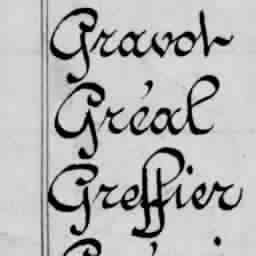 Gravot
Gréal
Greffier